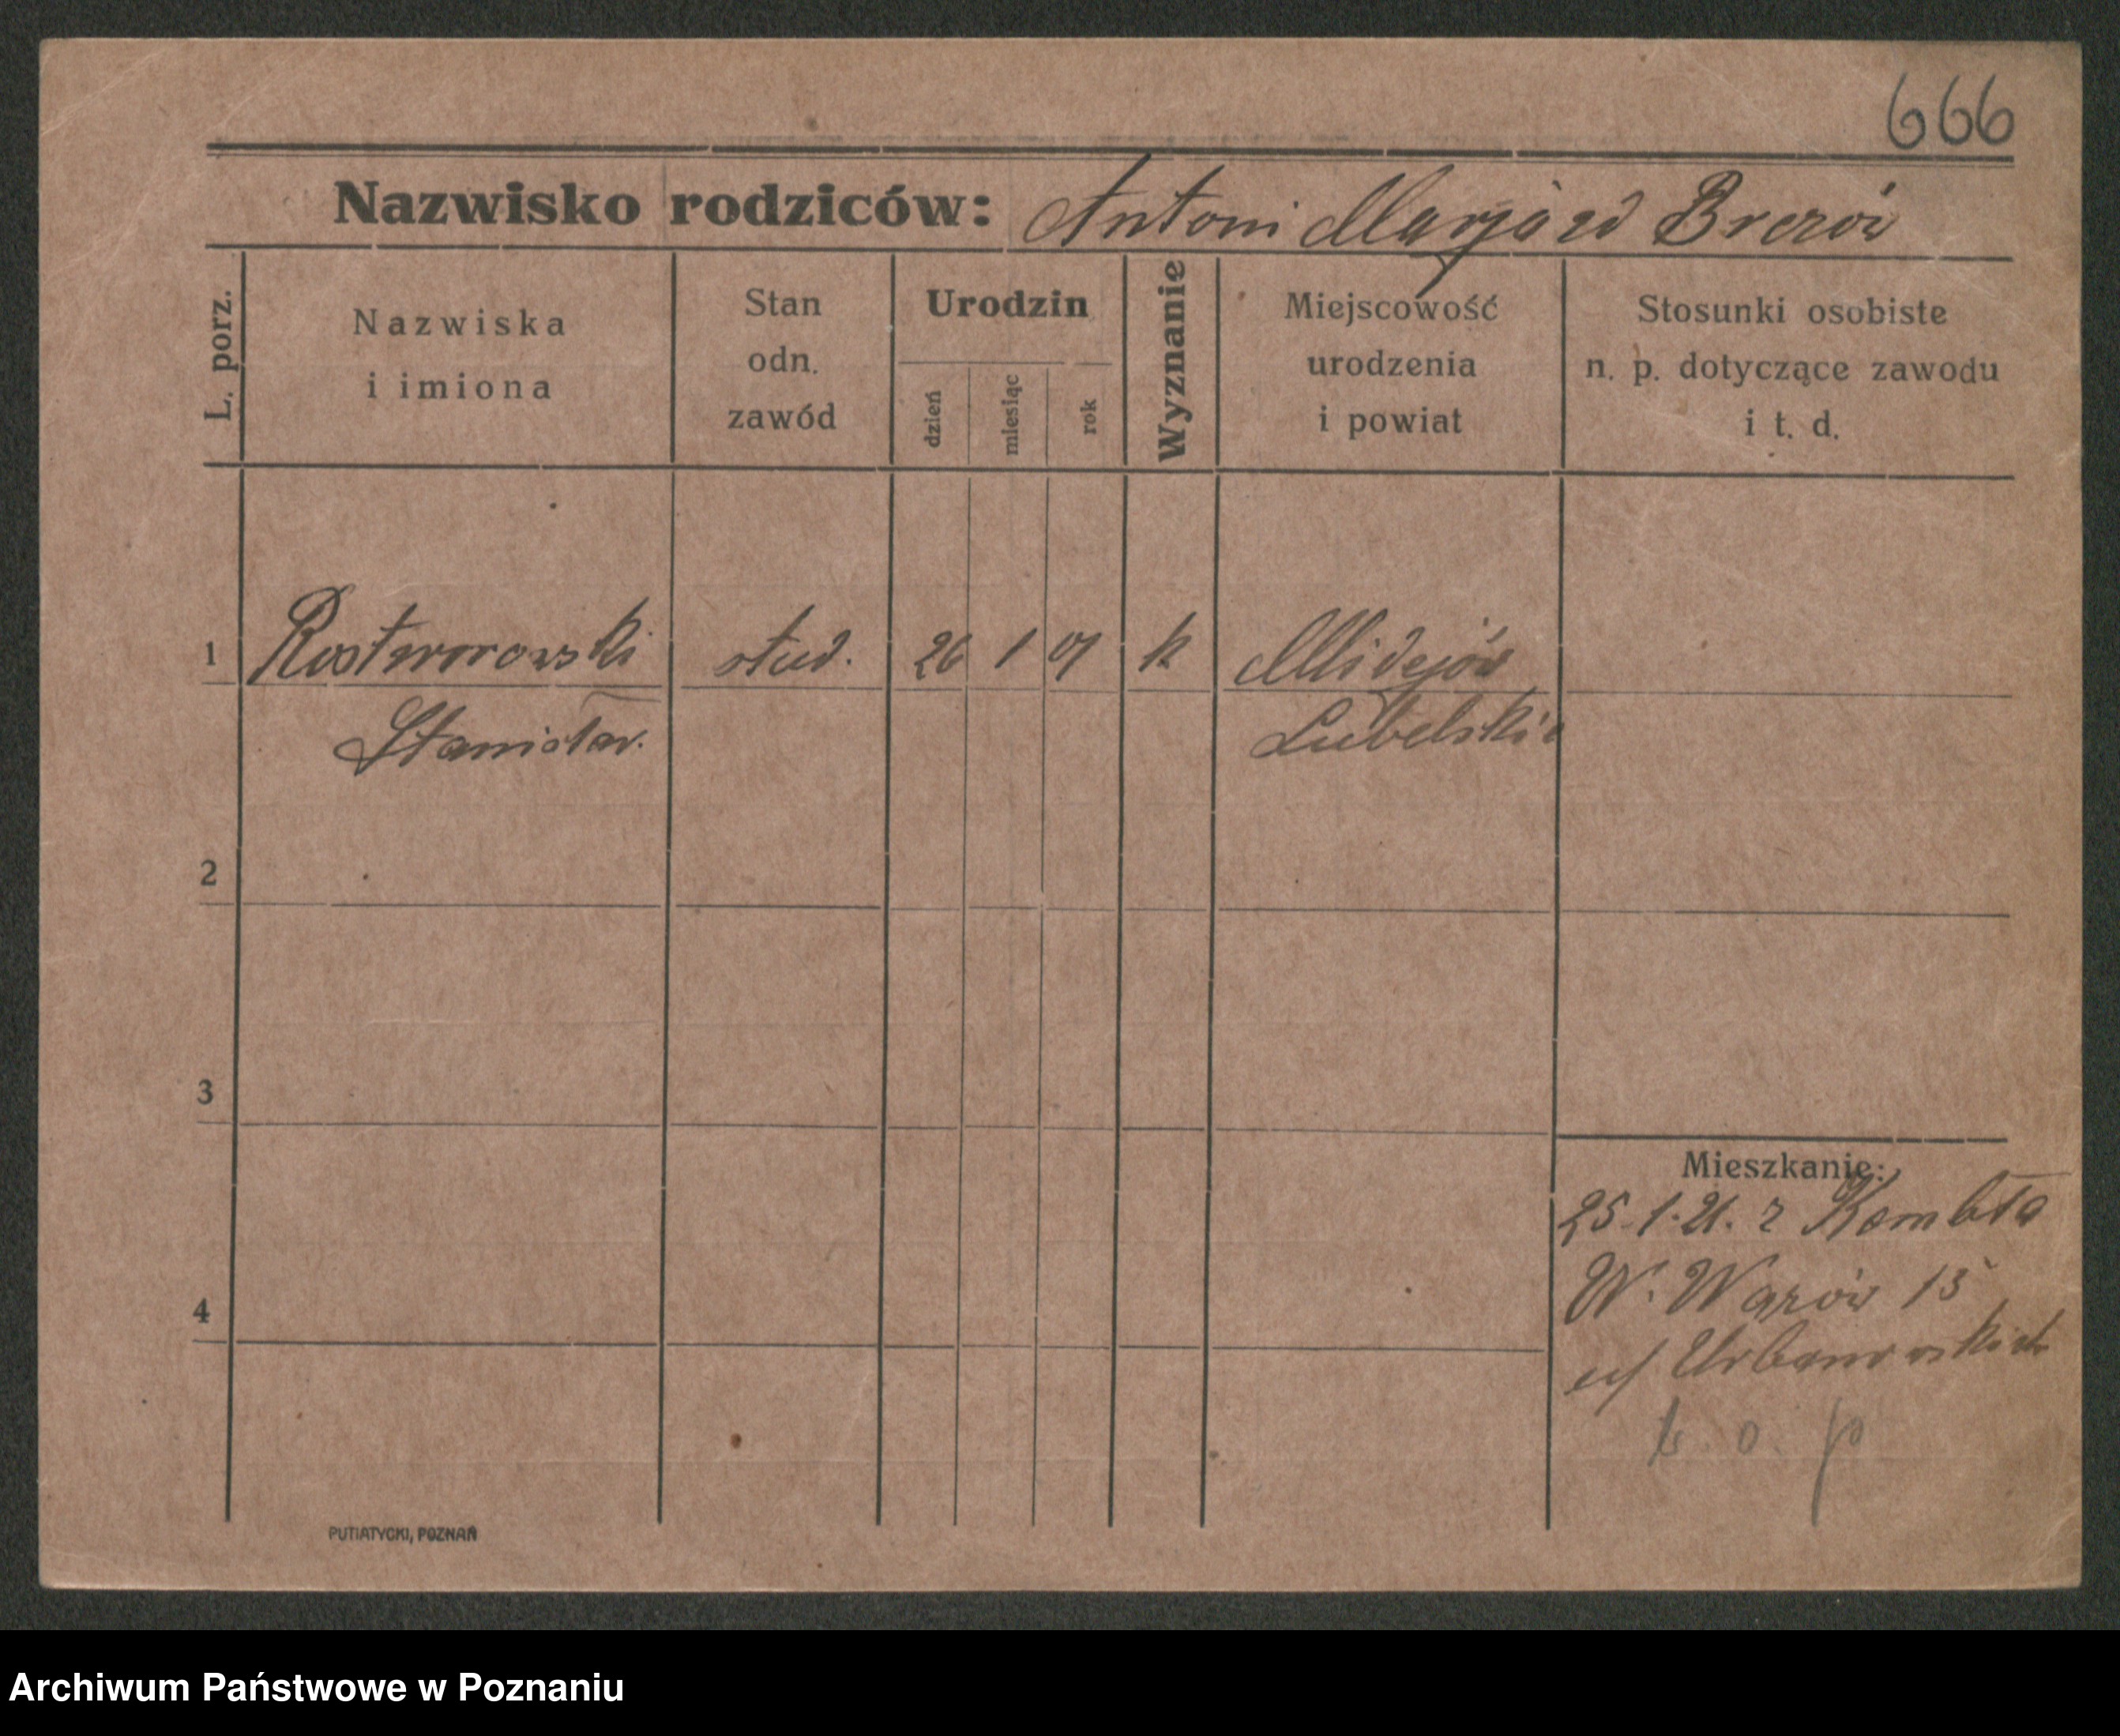 666
Nazwisko rodziców: Antoni Marja zd Brezów
L. porz.
Nazwiska
i imiona
Stan
odn.
zawód
Urodzin
dzień
miesiąc
rok
Wyznanie
Miejscowość
urodzenia
i powiat
Stosunki osobiste
n. p. dotyczące zawodu
i t. d.
1 Rostworowski stud. 26 1 01 k Milejów
Stanisław. Lubelskie
2
3
4
Mieszkanie:
25.1.21. z
W. 15
u/ Urbanowskich
b. o. p
PUTIATYCKI, POZNAŃ
Archiwum Państwowe w Poznaniu